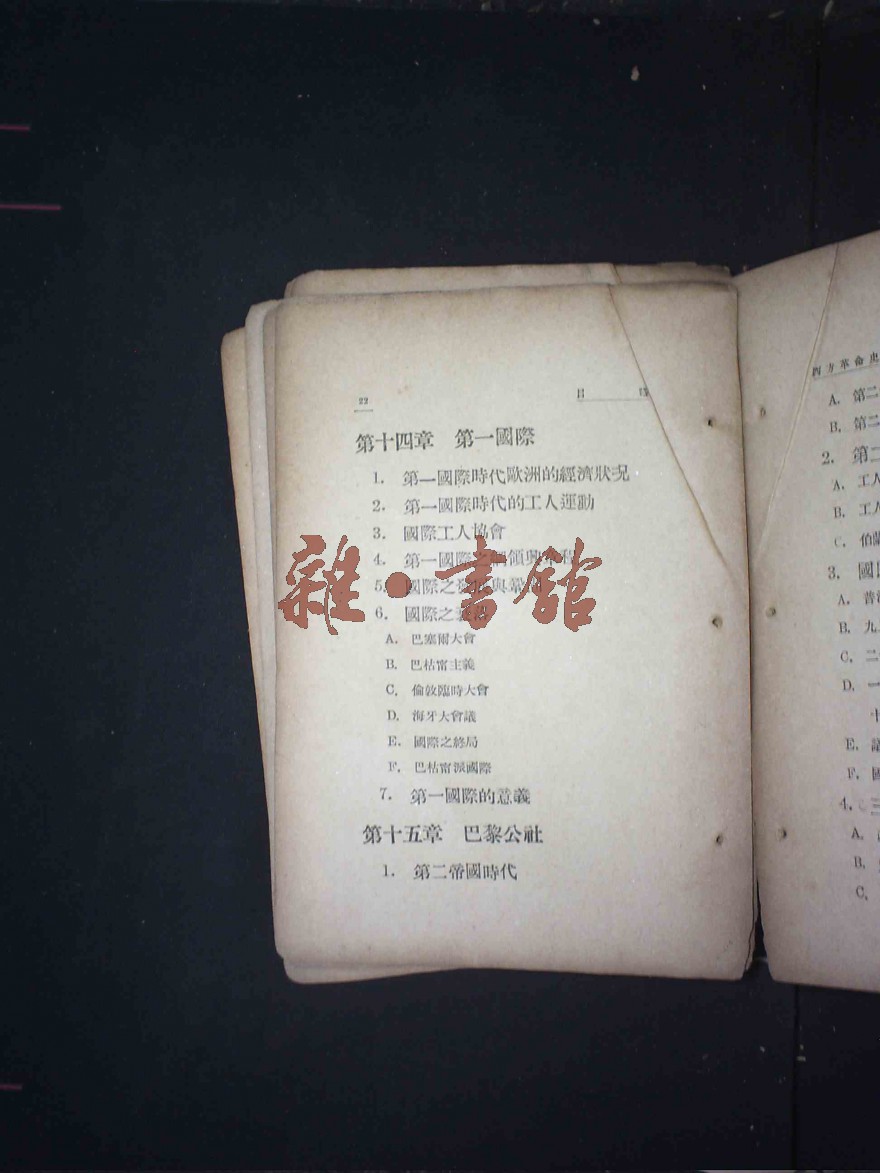 22
目
第十四章 第一國際
1. 第一國際時代歐洲的經濟狀況
2. 第一國際時代的工人運動
3. 國際工人協會
4. 第一國際之綱領與章程
5. 國際之發展與
6. 國際之衰落
A. 巴塞爾大會
B. 巴枯甯主義
C. 倫敦臨時大會
D. 海牙大會議
E. 國際之終局
F. 巴枯甯派國際
7. 第一國際的意義
第十五章 巴黎公社
1. 第二帝國時代
雜·書館
西方革命史
A. 第二
B. 第二
2. 第二
A. 工人
B. 工人
C. 伯
3. 國
A. 普
B. 九
C. 二
D. 一
十
E.
F. 國
4. 三
A.
B.
C.